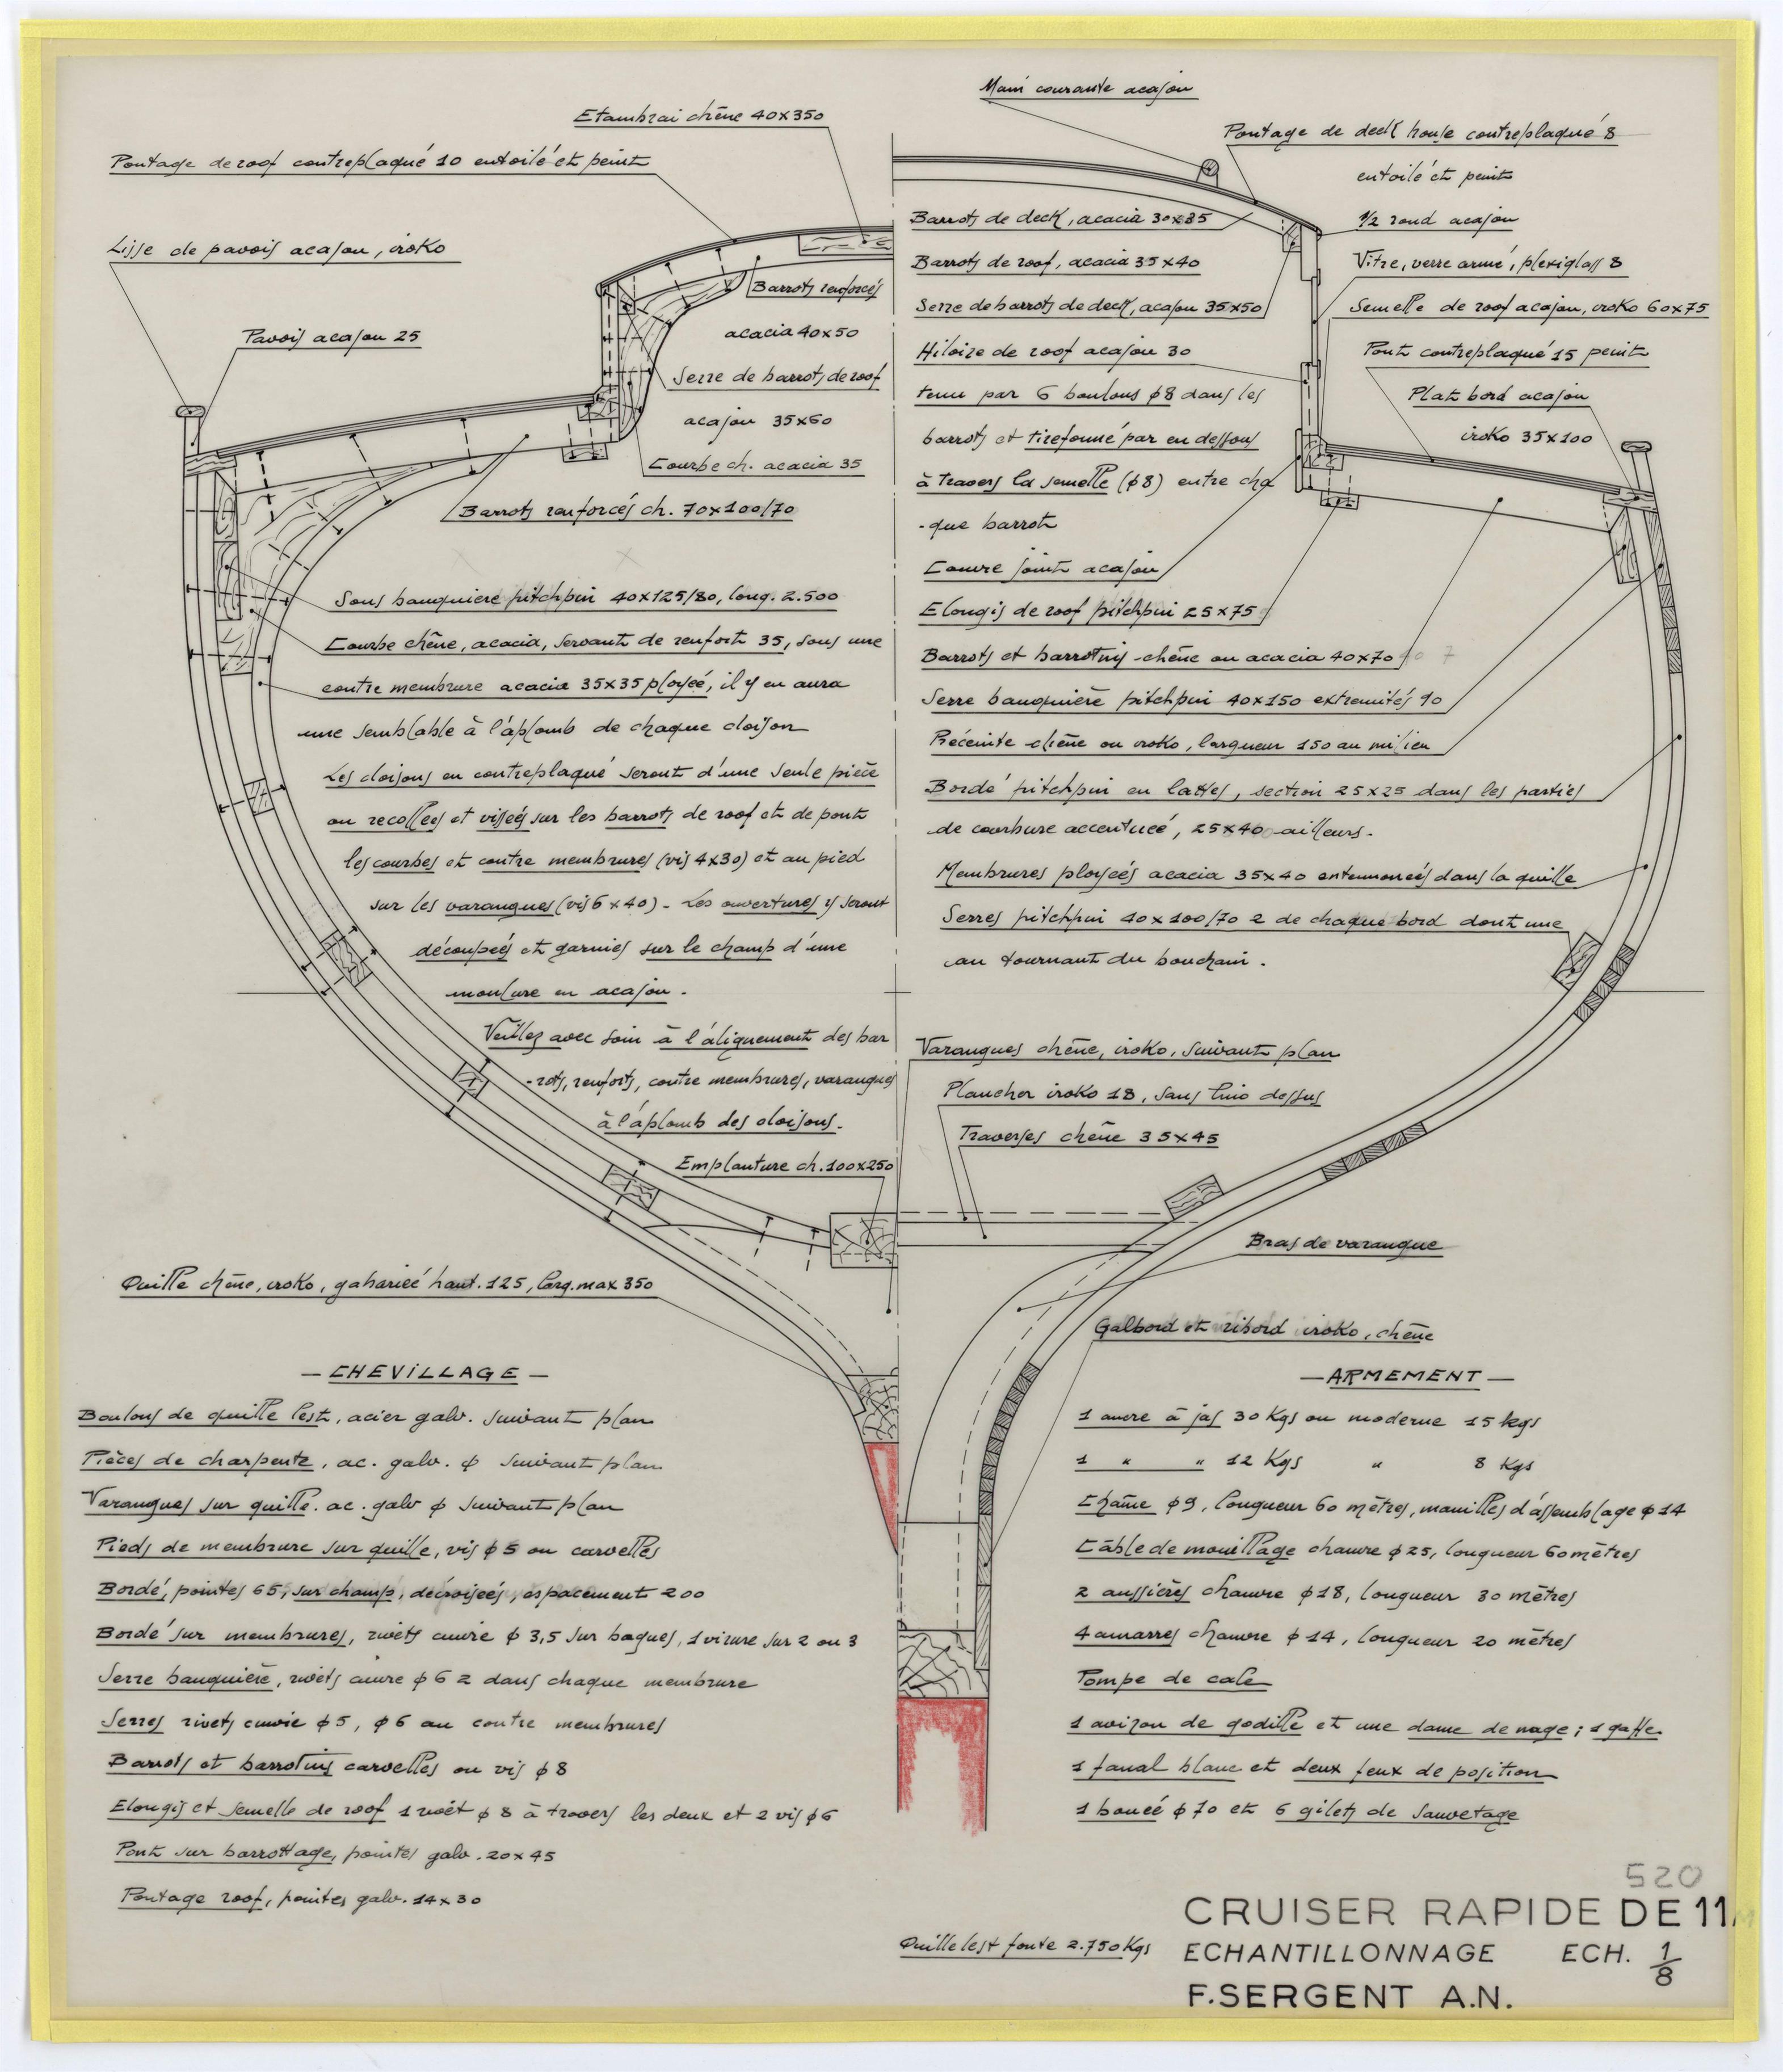 Main courante acajou
Etambrai chêne 40x350
Pontage de roof contreplaqué 10 entoilé et peint
Lisse de pavois acajou, iroko
Pavois acajou 25
Barrots renforcés
acacia 40x50
Serre de barrots de roof
acajou 35x60
Courbe ch. acacia 35
Barrots renforcés ch. 70x100/70
Sous bauquiere pitchpin 40x125/80, long. 2.500
Courbe chêne, acacia, servant de renfort 35, sous une
contre membrure acacia 35x35 ployée, il y en aura
une semblable à l'aplomb de chaque cloison
Les cloisons en contreplaqué seront d'une seule pièce
ou recollées et vissées sur les barrots de roof et de pont
les courbes et contre membrures (vis 4x30) et au pied
sur les varangues (vis 6x40) - Les ouvertures y seront
découpées et garnies sur le champ d'une
moulure en acajou.
Veillez avec soin à l'alignement des bar
-rots, renforts, contre membrures, varangues
à l'aplomb des cloisons.
Emplanture ch. 100x250
Quille chêne, iroko, gabariée haut. 125, larg. max 350
Pontage de deck house contreplaqué 8
entoilé et peint
1/2 rond acajou
Vitre, verre armé, plexiglass 8
Semelle de roof acajou, iroko 60x75
Pont contreplaqué 15 peint
Plat bord acajou
iroko 35x100
Barrots de deck, acacia 30x35
Barrots de roof, acacia 35x40
Serre de barrots de deck, acajou 35x50
Hiloire de roof acajou 30
tenu par 6 boulons ϕ8 dans les
barrots et tirefonné par en dessous
à travers la semelle (ϕ8) entre cha
-que barrot
Couvre joint acajou
Elongis de roof pitchpin 25x75
Barrots et barrotins chêne ou acacia 40x70
Serre bauquière pitchpin 40x150 extremités 90
Préceinte chêne ou iroko, largueur 150 au milieu
Bordé pitchpin en lattes, section 25x25 dans les parties
de courbure accentuée, 25x40 ailleurs.
Membrures ployées acacia 35x40 entemonées dans la quille
Serres pitchpin 40x100/70 2 de chaque bord dont une
au tournant du bouchain.
Varangues chêne, iroko, suivant plan
Plancher iroko 18, sans lino dessus
Traverses chêne 35x45
Bras de varangue
Galbord et ribord iroko, chêne
- CHEVILLAGE -
Boulons de quille lest, acier galv. suivant plan
Pièces de charpente, ac. galv. ϕ suivant plan
Varangues sur quille. ac. galv ϕ suivant plan
Pieds de membrure sur quille, vis ϕ5 ou carvelles
Bordé, pointes 65, sur champ, décroisées, espacement 200
Bordé sur membrures, rivets cuivre ϕ 3,5 sur bagues, 1 virure sur 2 ou 3
Serre bauquière, rivets cuivre ϕ6 2 dans chaque membrure
Serres rivets cuivre ϕ5, ϕ6 au contre membrures
Barrots et barrotins carvelles ou vis ϕ8
Elongis et semelle de roof 1 rivet ϕ 8 à travers les deux et 2 vis ϕ6
Pont sur barrottage, pointes galv. 20x45
Pontage roof, pointes galv. 14x30
- ARMEMENT -
1 ancre à jas 30 Kgs ou moderne 15 kgs
1 " " 12 Kgs " 8 Kgs
Chaîne ϕ9, longueur 60 mètres, manilles d'assemblage ϕ14
Câble de mouillage chanvre ϕ25, longueur 60 mètres
2 aussières chanvre ϕ18, longueur 30 mètres
4 amarres chanvre ϕ14, longueur 20 mètres
Pompe de cale
1 aviron de godille et une dame de nage ; 1 gaffe
1 fanal blanc et deux feux de position
1 bouée ϕ70 et 6 gilets de sauvetage
520
Quille lest fonte 2.750 Kgs
CRUISER RAPIDE DE 11M
ECHANTILLONNAGE ECH. 1/8
F. SERGENT A.N.